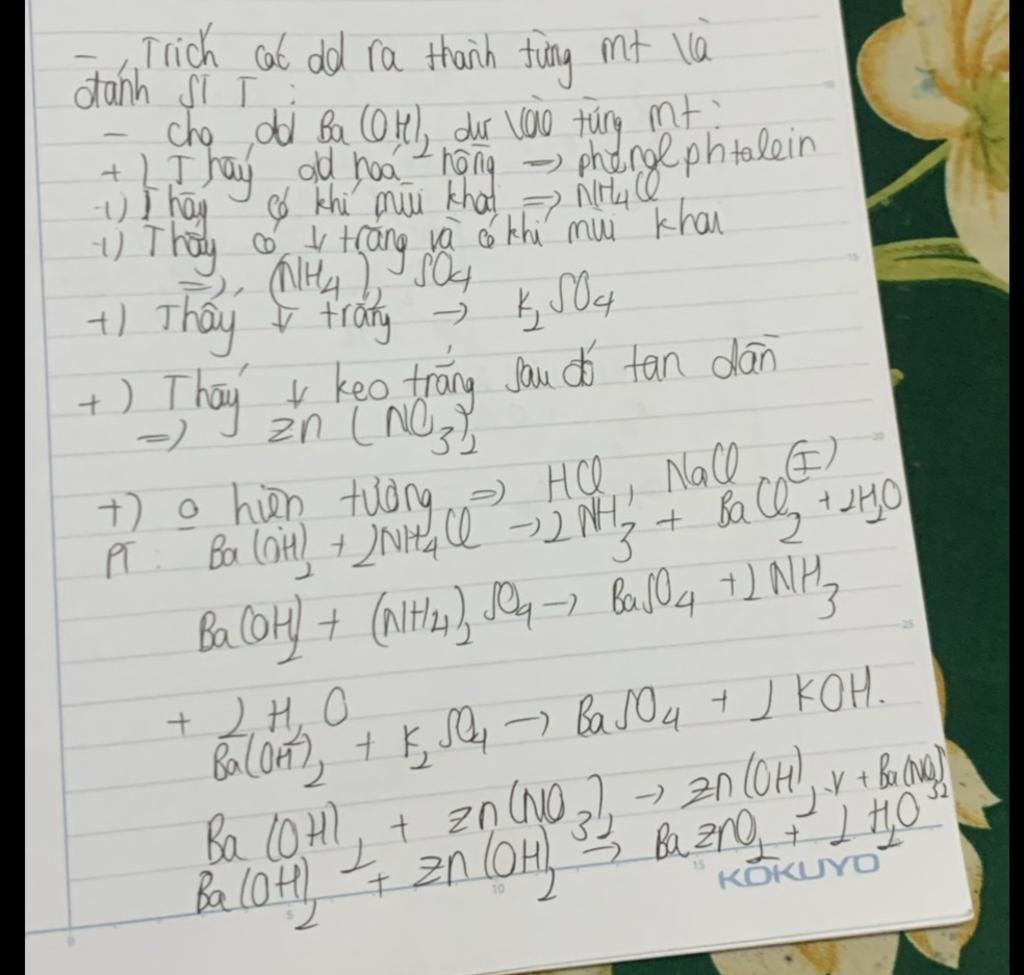 - Trích các dd ra thành từng mt và
đánh STT :
- cho dd Ba(OH)₂ dư vào từng mt:
+) Thấy dd hoá hồng => phenolphtalein
+) Thấy có khí mùi khai => NH₄Cl
+) Thấy có ↓ trắng và có khí mùi khai
=> (NH₄)₂SO₄
+) Thấy ↓ trắng → K₂SO₄
+) Thấy ↓ keo trắng sau đó tan dần
=> Zn(NO₃)₂
+) 0 hiện tượng => HCl, NaCl (I)
PT: Ba(OH)₂ + 2NH₄Cl → 2NH₃ + BaCl₂ + 2H₂O
Ba(OH)₂ + (NH₄)₂SO₄ → BaSO₄ + 2NH₃
+ 2H₂O
Ba(OH)₂ + K₂SO₄ → BaSO₄ + 2KOH.
Ba(OH)₂ + Zn(NO₃)₂ → Zn(OH)₂↓ + Ba(NO₃)₂
Ba(OH)₂ + Zn(OH)₂ → BaZnO₂ + 2H₂O
KOKUYO